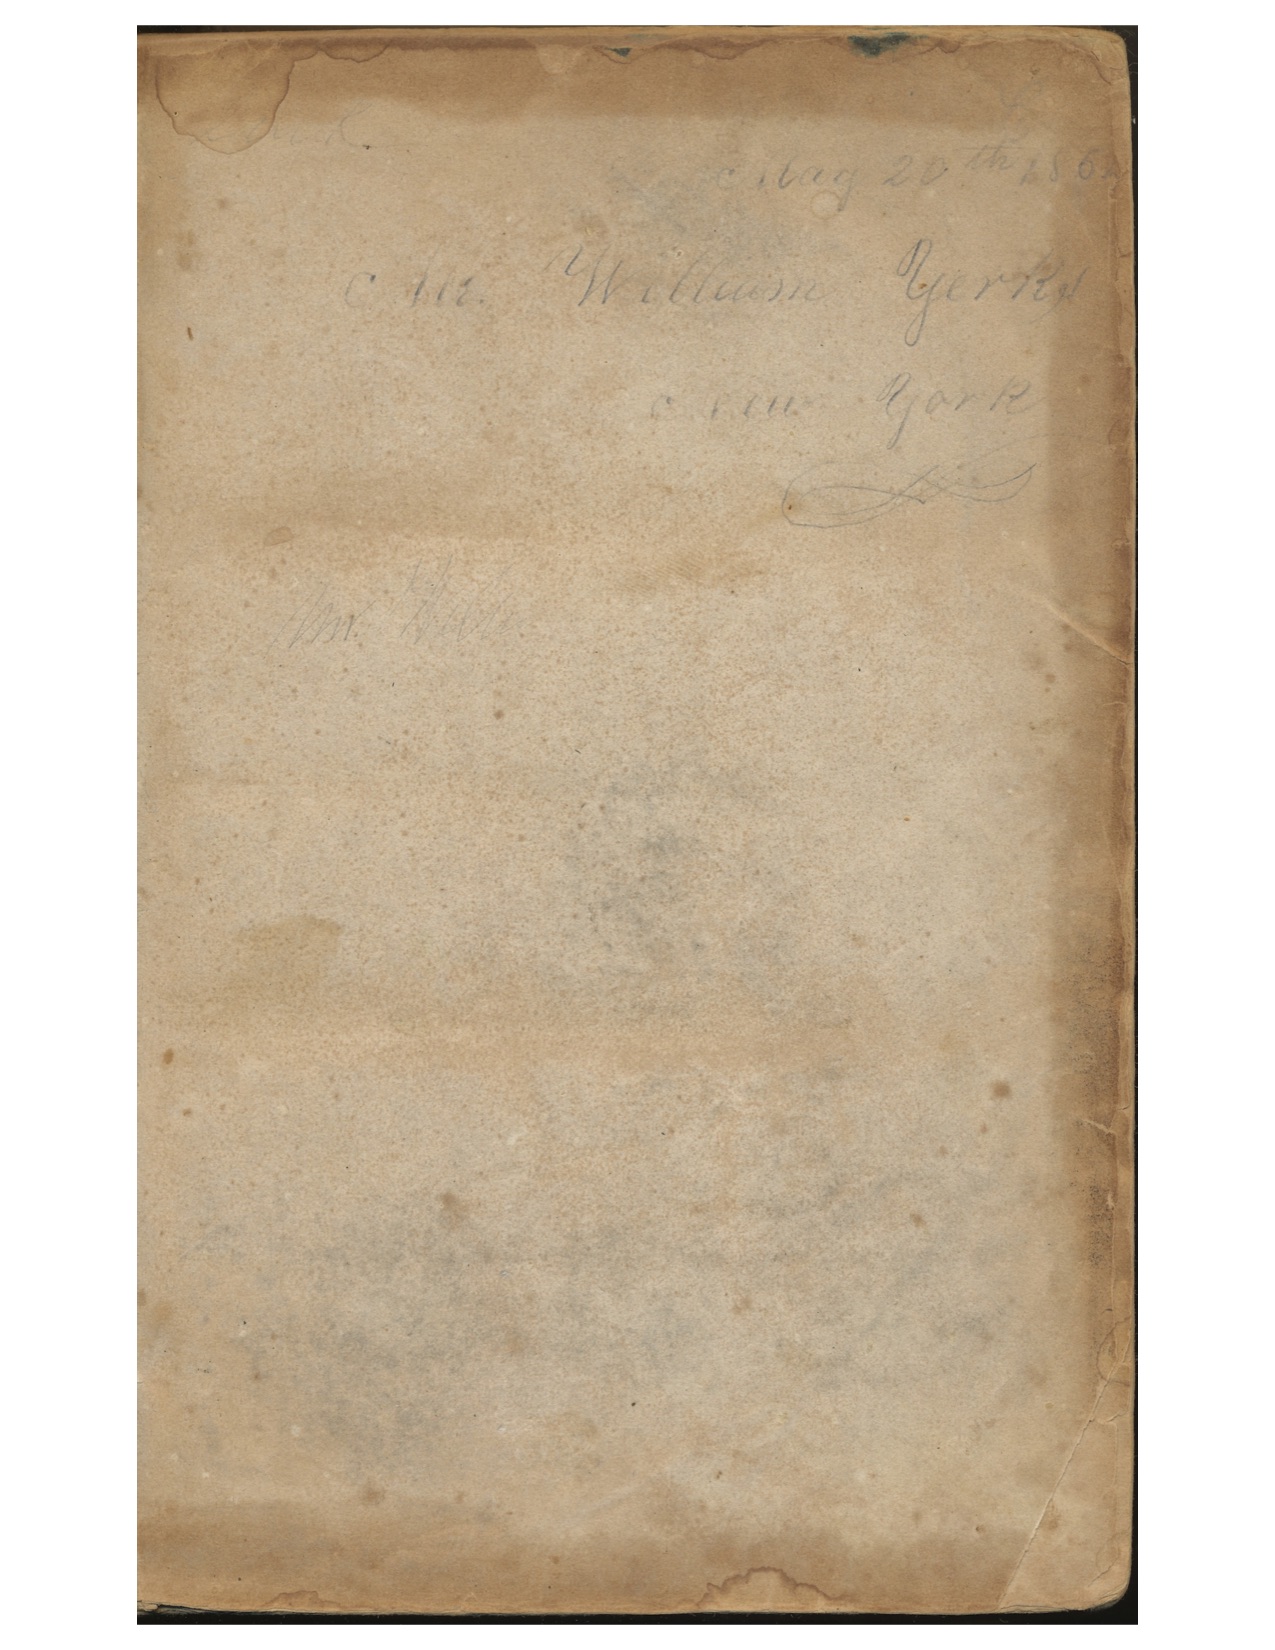 May 20th 186
Mr. William Yerks
New York
Mr.